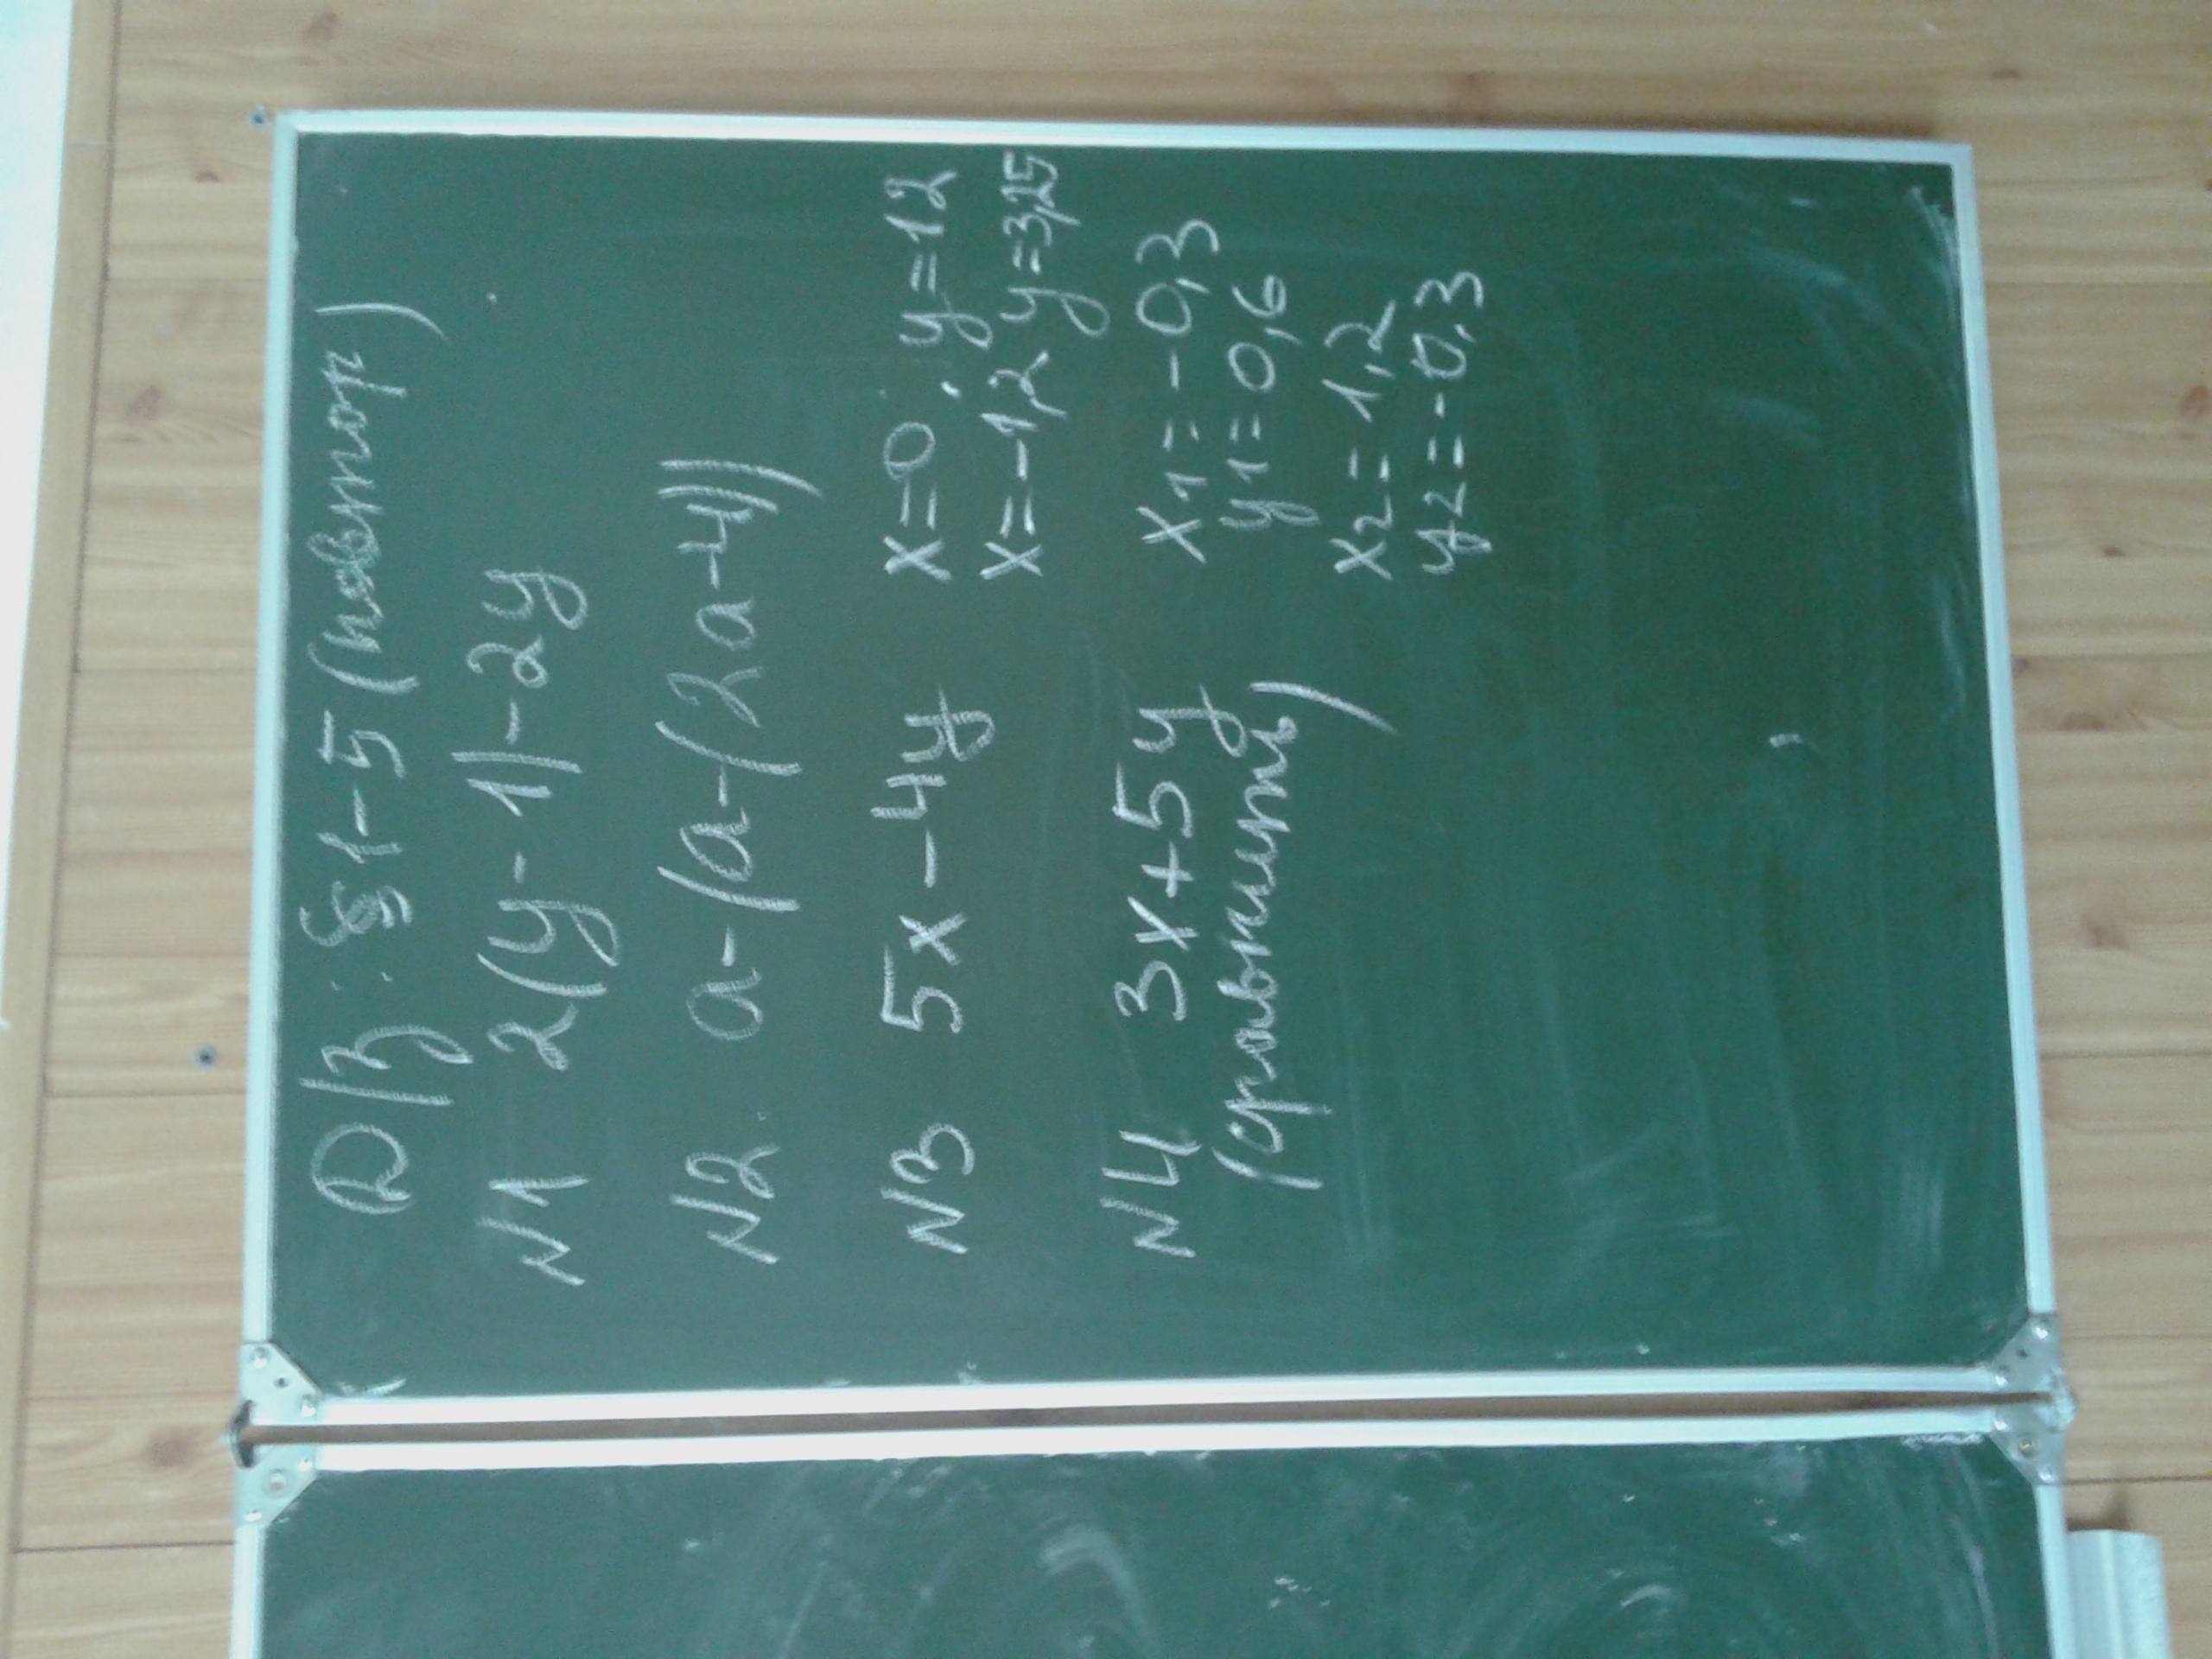 Д/з: §1-5 (повтор)
N1 2(y-1)-2y
N2. a-(a-(2a-4))
N3 5x-4y x=0, y=12
x=-1,2 y=3,25
N4 3x+5y x1=-0,3
(сравнить) y1=0,6
x2=1,2
y2=-0,3